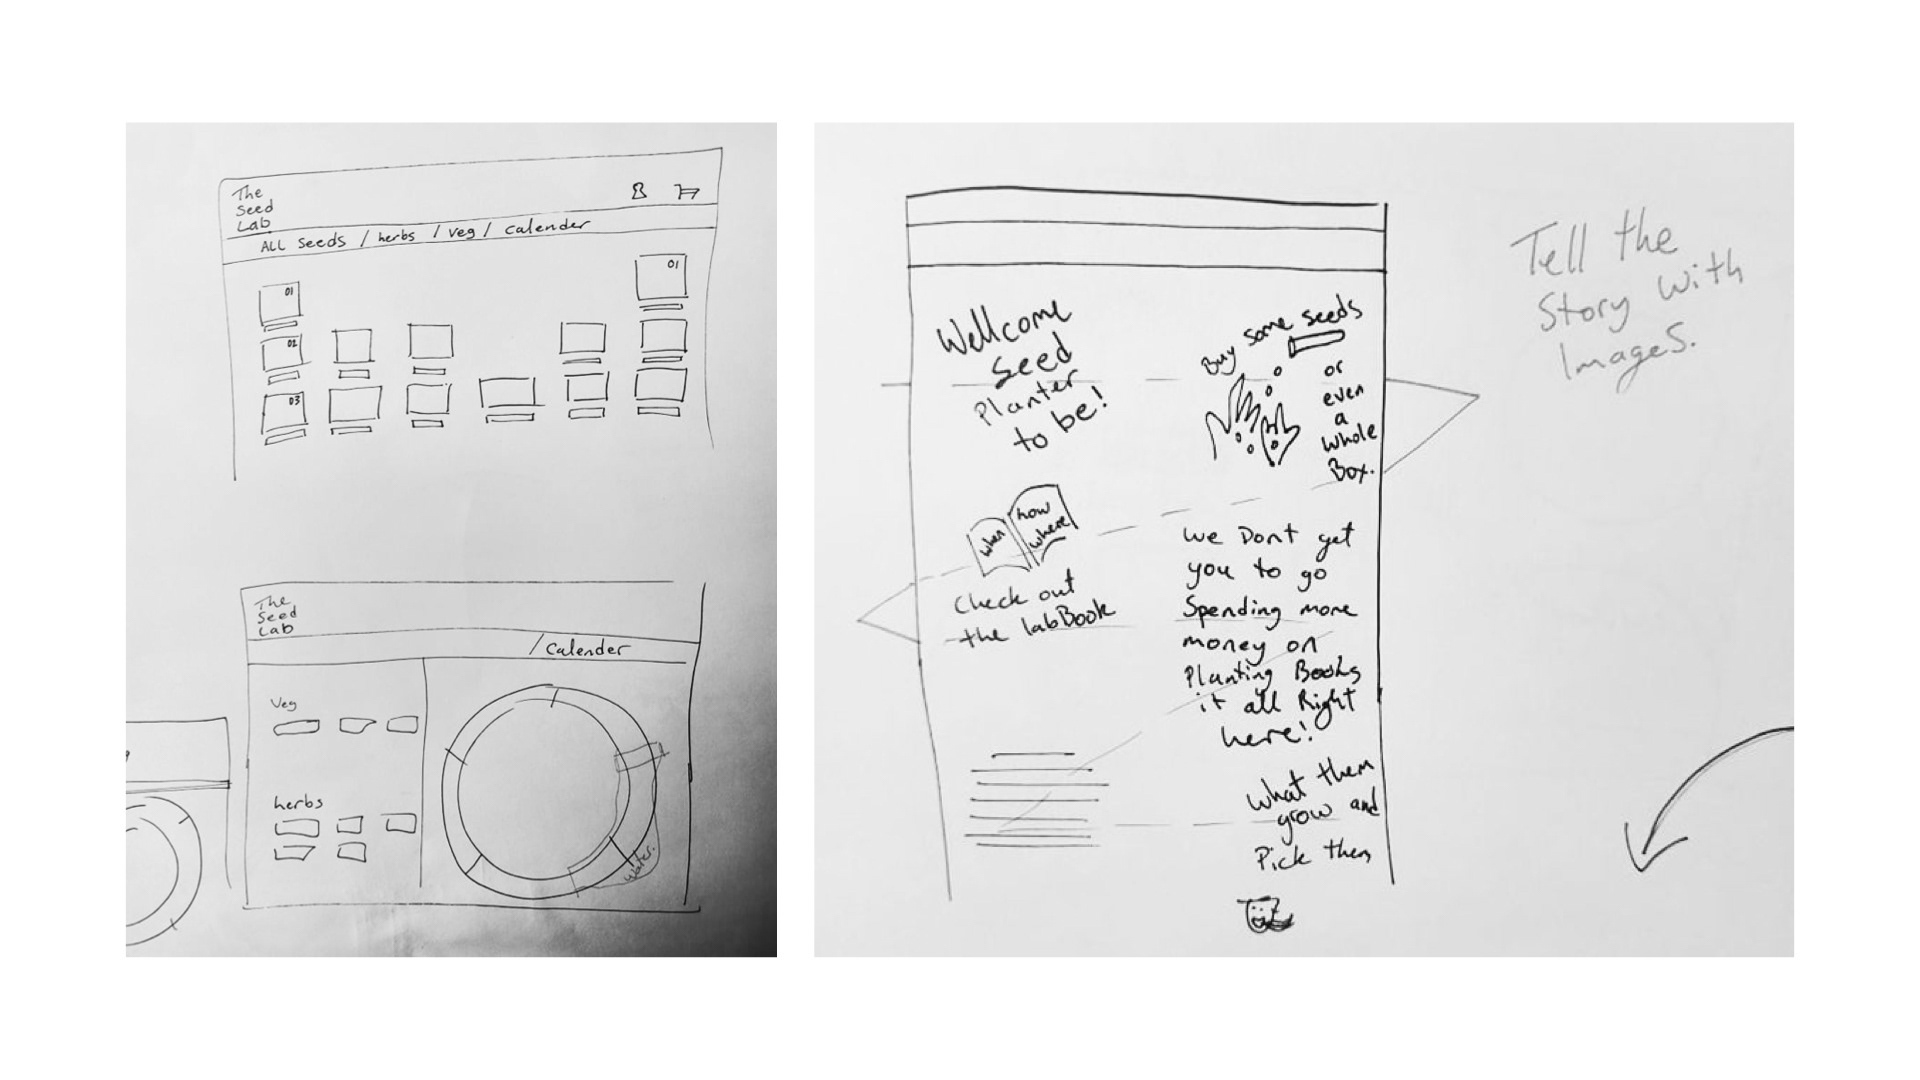 The
Seed
Lab
ALL Seeds / herbs / Veg / Calender
01
02
03
01
The
Seed
Lab
/ Calender
Veg
herbs
water.
Wellcome
Seed
Planter
to be!
Buy some seeds
or
even
a
whole
Box.
when
how
where
Check out
the labBook
we Dont get
you to go
Spending more
money on
Planting Books
it all Right
here!
What them
grow and
Pick them
Tell the
Story with
Images.